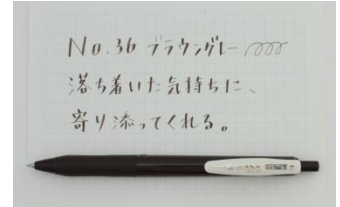 No.36 ブラウングレー
落ち着いた気持ちに、
寄り添ってくれる。